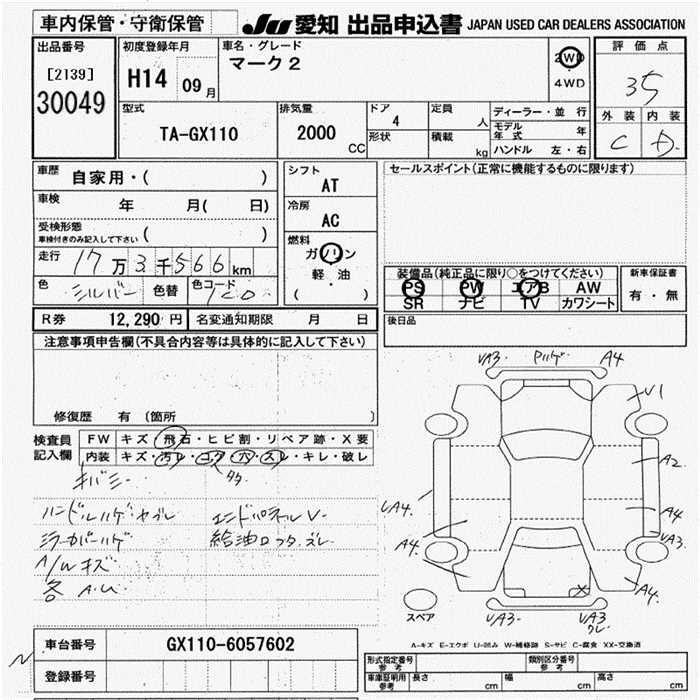 車内保管・守衛保管
JU 愛知 出品申込書 JAPAN USED CAR DEALERS ASSOCIATION
出品番号
[2139]
30049
初度登録年月
H14 09月
車名・グレード
マーク2
2WD
4WD
評価点
3.5
外装 内装
C D
型式
TA-GX110
排気量
2000 CC
ドア
4
形状
定員
人
積載
kg
ディーラー・並行
モデル年式 年
ハンドル 左・右
車歴
自家用・( )
車検
年 月( 日)
受検形態
車検付きのみ記入して下さい ( )
走行
17万3千566km
色
シルバー
色替
色コード
1C0
シフト
AT
冷房
AC
燃料
ガソリン
軽・油
( )
セールスポイント(正常に機能するものに限ります)
装備品(純正品に限り○をつけてください)
PS PW エアB AW
SR ナビ TV カワシート
新車保証書
有・無
後日品
R券 12,290円
名変通知期限 月 日
注意事項申告欄(不具合内容等は具体的に記入して下さい)
修復歴 有 〔箇所 〕
検査員記入欄
FW キズ・飛石・ヒビ割・リペア跡・X要
内装 キズ・汚レ・コゲ・穴・スレ・キレ・破レ
ハンドルハゲ・ヤブレ エンドパネルV-
ミラーカバーハゲ 給油口フタズレ
A/Wキズ
各A.U
UA3. Pハゲ A4
V1
A2
UA4.
A4
UA3.
A4.
A4.
X
スペア
UA3- UA3
クレ
A-キズ E-エクボ U-凹み W-補修跡 S-サビ C-腐食 XX-交換済
車台番号
GX110-6057602
登録番号
形式指定番号
参考
類別区分番号
参考
車庫証明用
参考
長さ cm
幅 cm
高さ cm